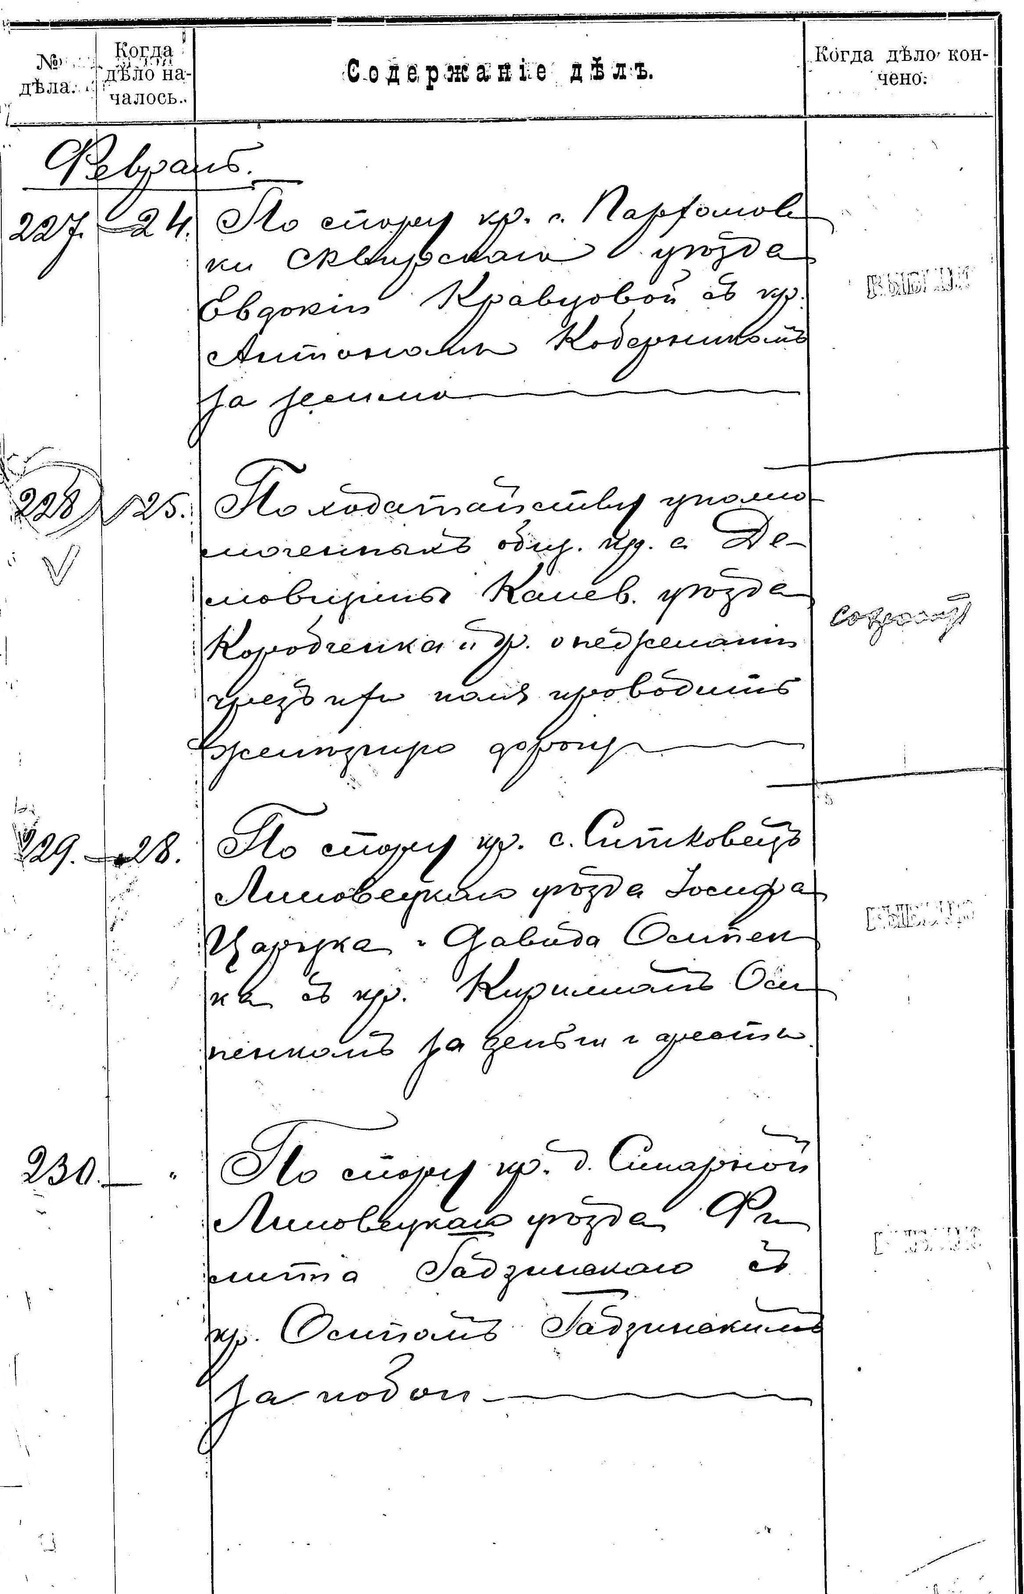 № дѣла.
Когда дѣло началось.
Содержаніе дѣлъ.
Когда дѣло кончено.
Февраль.
227. — 24. По спору кр. с. Парфомов
ки Сквирскаго уѣзда
Евдокіи Кравцовой съ кр.
Антономъ Коберникомъ
за землю
228 25. По ходатайству уполно
моченныхъ общ. кр. с. Де-
мовщины Канев. уѣзда
Коробченка и др. о нежеланіи
чрезъ ихъ поля проводить
желѣзную дорогу
229. — 28. По спору кр. с. Ситковецъ
Липовецкаго уѣзда Іосифа
Царука и Давида Осипен
ка съ кр. Кирилломъ Оси
пенкомъ за деньги и
230. — " По спору кр. д. Скиарной
Липовецкаго уѣзда Фи
липа Гадзинскаго съ
кр. Осипомъ Гадзинскимъ
за побои